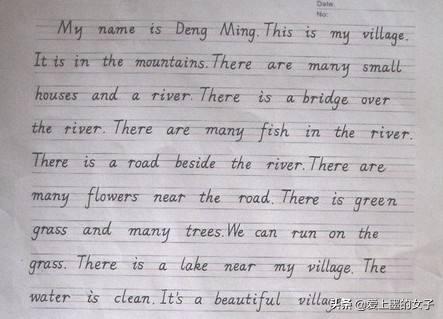 Date:
No:
My name is Deng Ming. This is my village.
It is in the mountains. There are many small
houses and a river. There is a bridge over
the river. There are many fish in the river.
There is a road beside the river. There are
many flowers near the road. There is green
grass and many trees. We can run on the
grass. There is a lake near my village. The
water is clean. It's a beautiful
头条 @爱上幽的女子